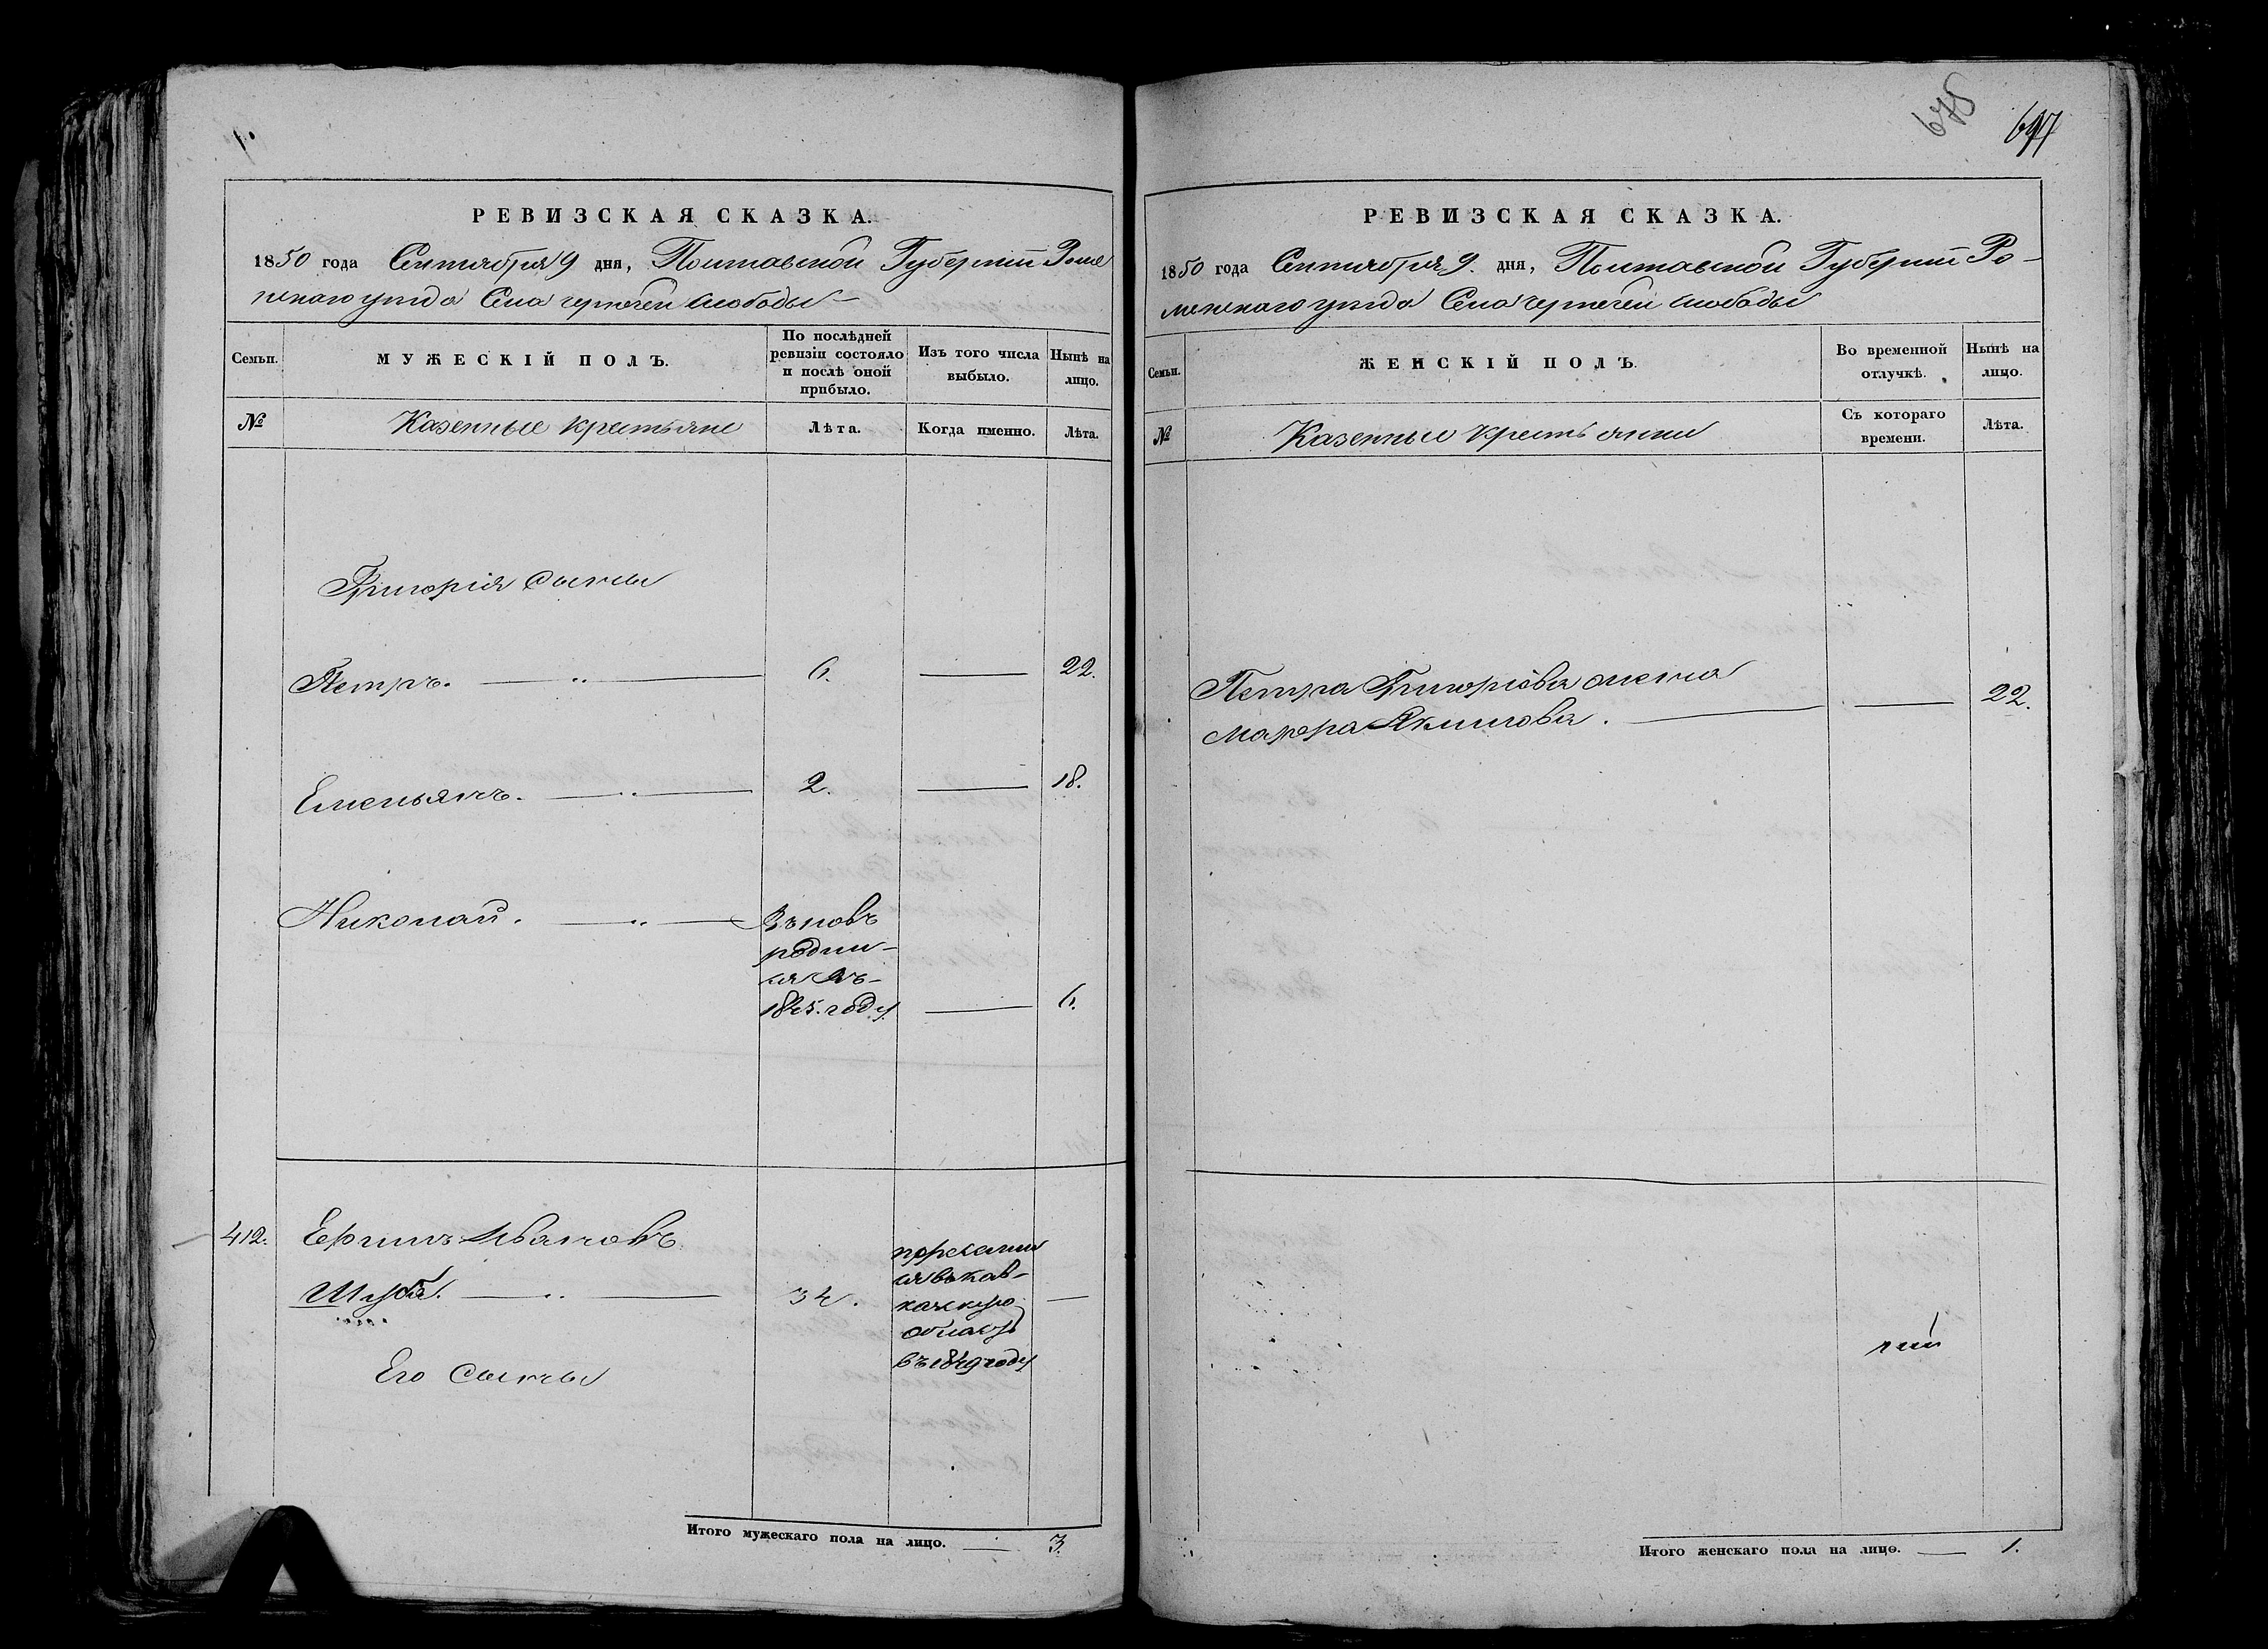 РЕВИЗСКАЯ СКАЗКА.
1850 года Сентября 9 дня, Полтавской Губерніи Роме
нскаго уезда Села чернечей слободы
Семьи.
МУЖЕСКІЙ ПОЛЪ.
По послѣдней
ревизіи состояло
и послѣ оной
прибыло.
Изъ того числа
выбыло.
Нынѣ на
лицо.
№
Казенные крестьяне
Лѣта.
Когда именно.
Лѣта.
Григорія сыны
Петръ. 6. 22.
Емельянъ. 2. 18.
Николай.
родил-
ся въ-
1845. году 6.
412. Ефимъ Ивановъ
Шуба. 34.
переселил
ся въ кав-
казскую
область
въ 1849 году
Его Сыны
Итого мужескаго пола на лицо. 3.
678
РЕВИЗСКАЯ СКАЗКА.
1850 года Сентября 9. дня, Полтавской Губерніи Ро-
менскаго уезда Села чернечей слободы
Семьи.
ЖЕНСКІЙ ПОЛЪ.
Во временной
отлучкѣ.
Нынѣ на
лицо.
№
Казенные крестьянки
Съ котораго
времени.
Лѣта.
Петра Григоріева жена
Марфа Якимова. 22.
Итого женскаго пола на лицо. 1.